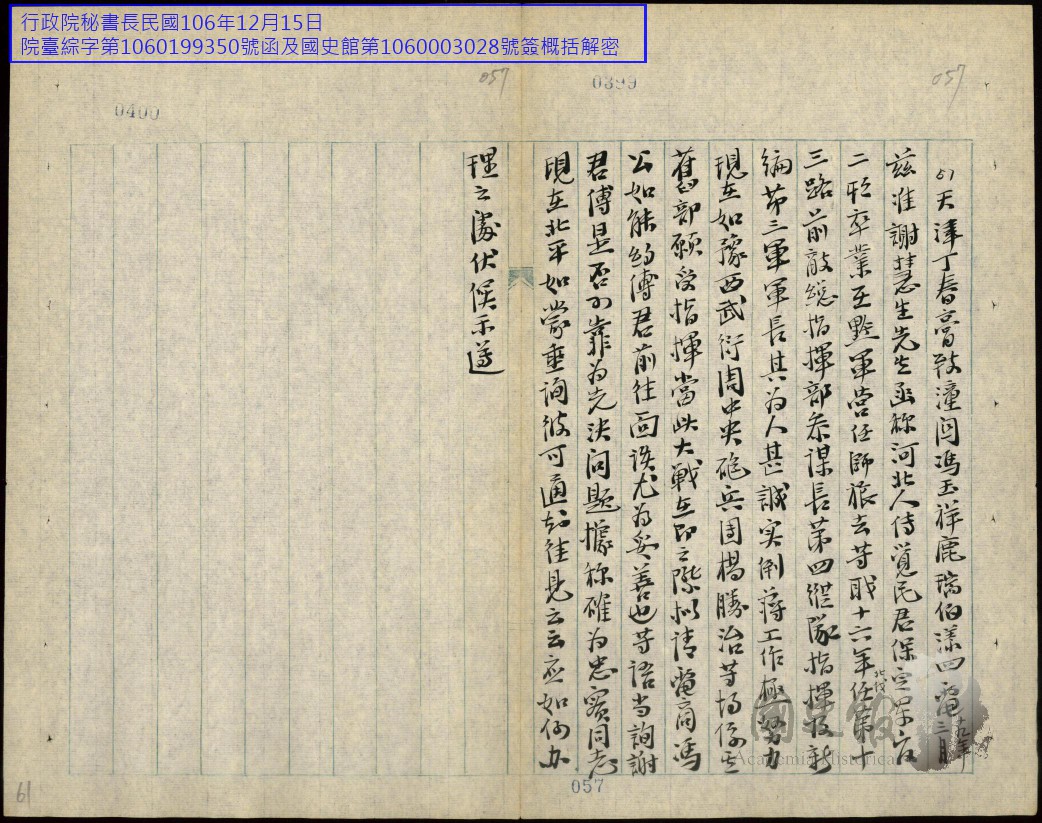 行政院秘書長民國106年12月15日
院臺綜字第1060199350號函及國史館第1060003028號簽概括解密
057
0399
057
0400
51天津丁春膏致潼關馮玉祥鹿瑞伯漾四電 十九年三月
茲准謝慧生先生函稱河北人傅覺民君保定軍官
二期卒業在黔軍曾任師旅長等職十六年任第十
三路前敵總指揮部參謀長第四縱隊指揮及新
編第三軍軍長其為人甚誠實倒蔣工作極努力
現在如豫西武衍周中央砲兵團楊勝治等均係其
舊部願受指揮當此大戰在即之際擬請電商馮
公如能約傅君前往面談尤為妥善也等語當詢謝
君傅是否可靠為先決問題據稱確為忠實同志
現在北平如蒙垂詢彼可通知往見云云應如何办
理之處伏候示遵
國史館
Academia Historica
057
61